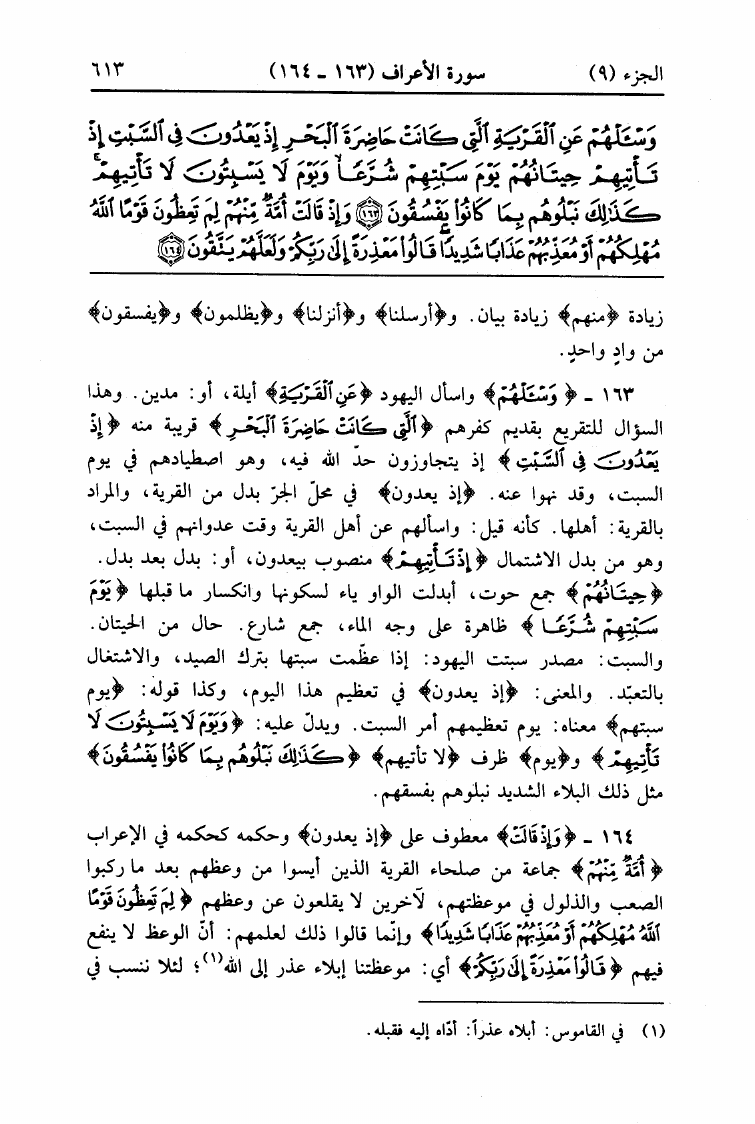 الجزء (٩) سورة الأعراف (١٦٣ - ١٦٤) ٦١٣
وَسْـَٔلْهُمْ عَنِ ٱلْقَرْيَةِ ٱلَّتِى كَانَتْ حَاضِرَةَ ٱلْبَحْرِ إِذْ يَعْدُونَ فِى ٱلسَّبْتِ إِذْ
تَأْتِيهِمْ حِيتَانُهُمْ يَوْمَ سَبْتِهِمْ شُرَّعًا وَيَوْمَ لَا يَسْبِتُونَ لَا تَأْتِيهِمْ
كَذَٰلِكَ نَبْلُوهُم بِمَا كَانُوا۟ يَفْسُقُونَ ١٦٣ وَإِذْ قَالَتْ أُمَّةٌ مِّنْهُمْ لِمَ تَعِظُونَ قَوْمًا ٱللَّهُ
مُهْلِكُهُمْ أَوْ مُعَذِّبُهُمْ عَذَابًا شَدِيدًا قَالُوا۟ مَعْذِرَةً إِلَىٰ رَبِّكُمْ وَلَعَلَّهُمْ يَتَّقُونَ ١٦٤
زيادة ﴿منهم﴾ زيادة بيان. و﴿أرسلنا﴾ و﴿أنزلنا﴾ و﴿يظلمون﴾ و﴿يفسقون﴾
من وادٍ واحدٍ.
١٦٣ - ﴿وَسْـَٔلْهُمْ﴾ واسأل اليهود ﴿عَنِ ٱلْقَرْيَةِ﴾ أيلة، أو: مدين. وهذا
السؤال للتقريع بقديم كفرهم ﴿ٱلَّتِى كَانَتْ حَاضِرَةَ ٱلْبَحْرِ﴾ قريبة منه ﴿إِذْ
يَعْدُونَ فِى ٱلسَّبْتِ﴾ إذ يتجاوزون حدّ الله فيه، وهو اصطيادهم في يوم
السبت، وقد نهوا عنه. ﴿إذ يعدون﴾ في محلّ الجرّ بدل من القرية، والمراد
بالقرية: أهلها. كأنه قيل: واسألهم عن أهل القرية وقت عدوانهم في السبت،
وهو من بدل الاشتمال ﴿إِذْ تَأْتِيهِمْ﴾ منصوب بيعدون، أو: بدل بعد بدل.
﴿حِيتَانُهُمْ﴾ جمع حوت، أبدلت الواو ياء لسكونها وانكسار ما قبلها ﴿يَوْمَ
سَبْتِهِمْ شُرَّعًا﴾ ظاهرة على وجه الماء، جمع شارع. حال من الحيتان.
والسبت: مصدر سبتت اليهود: إذا عظّمت سبتها بترك الصيد، والاشتغال
بالتعبّد. والمعنى: ﴿إذ يعدون﴾ في تعظيم هذا اليوم، وكذا قوله: ﴿يوم
سبتهم﴾ معناه: يوم تعظيمهم أمر السبت. ويدلّ عليه: ﴿وَيَوْمَ لَا يَسْبِتُونَ لَا
تَأْتِيهِمْ﴾ و﴿يوم﴾ ظرف ﴿لا تأتيهم﴾ ﴿كَذَٰلِكَ نَبْلُوهُم بِمَا كَانُوا۟ يَفْسُقُونَ﴾
مثل ذلك البلاء الشديد نبلوهم بفسقهم.
١٦٤ - ﴿وَإِذْ قَالَتْ﴾ معطوف على ﴿إذ يعدون﴾ وحكمه كحكمه في الإعراب
﴿أُمَّةٌ مِّنْهُمْ﴾ جماعة من صلحاء القرية الذين أيسوا من وعظهم بعد ما ركبوا
الصعب والذلول في موعظتهم، لآخرين لا يقلعون عن وعظهم ﴿لِمَ تَعِظُونَ قَوْمًا
ٱللَّهُ مُهْلِكُهُمْ أَوْ مُعَذِّبُهُمْ عَذَابًا شَدِيدًا﴾ وإنّما قالوا ذلك لعلمهم: أنّ الوعظ لا ينفع
فيهم ﴿قَالُوا۟ مَعْذِرَةً إِلَىٰ رَبِّكُمْ﴾ أي: موعظتنا إبلاء عذر إلى الله(١)؛ لئلا ننسب في
(١) في القاموس: أبلاه عذراً: أدّاه إليه فقبله.